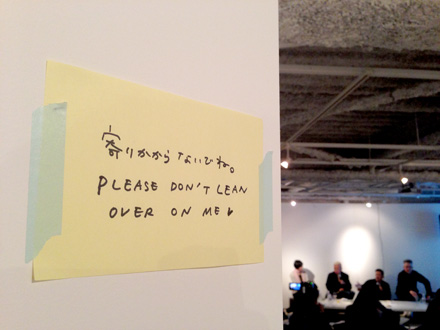 寄りかからないでね。
PLEASE DON'T LEAN
OVER ON ME ♥